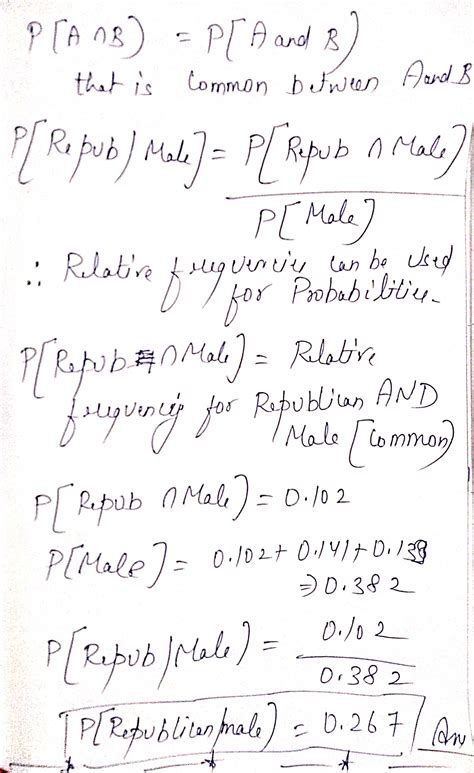 P[A ∩ B) = P[A and B)
that is Common between A and B
P[Repub/Male] = P[Repub ∩ Male)
P[Male)
∴ Relative frequencies can be used
for Probabilities.
P[Repub ∩ Male] = Relative
frequency for Republican AND
Male [Common)
P[Repub ∩ Male) = 0.102
P[Male] = 0.102 + 0.141 + 0.139
⇒ 0.382
P[Repub/Male) = 0.102
0.382
P[Republican/male) = 0.267 Ans